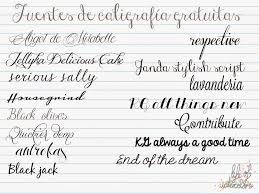 Fuentes de caligrafía gratuitas
Angel de Mirabelle
Jellyka Delicious Cake
seriously sally
Housegrind
Black olives
Quickier demo
andrekas
Black jack
respective
Janda stylish script
lavanderia
KG all things new
Contribute
KG always a good time
End of the dream